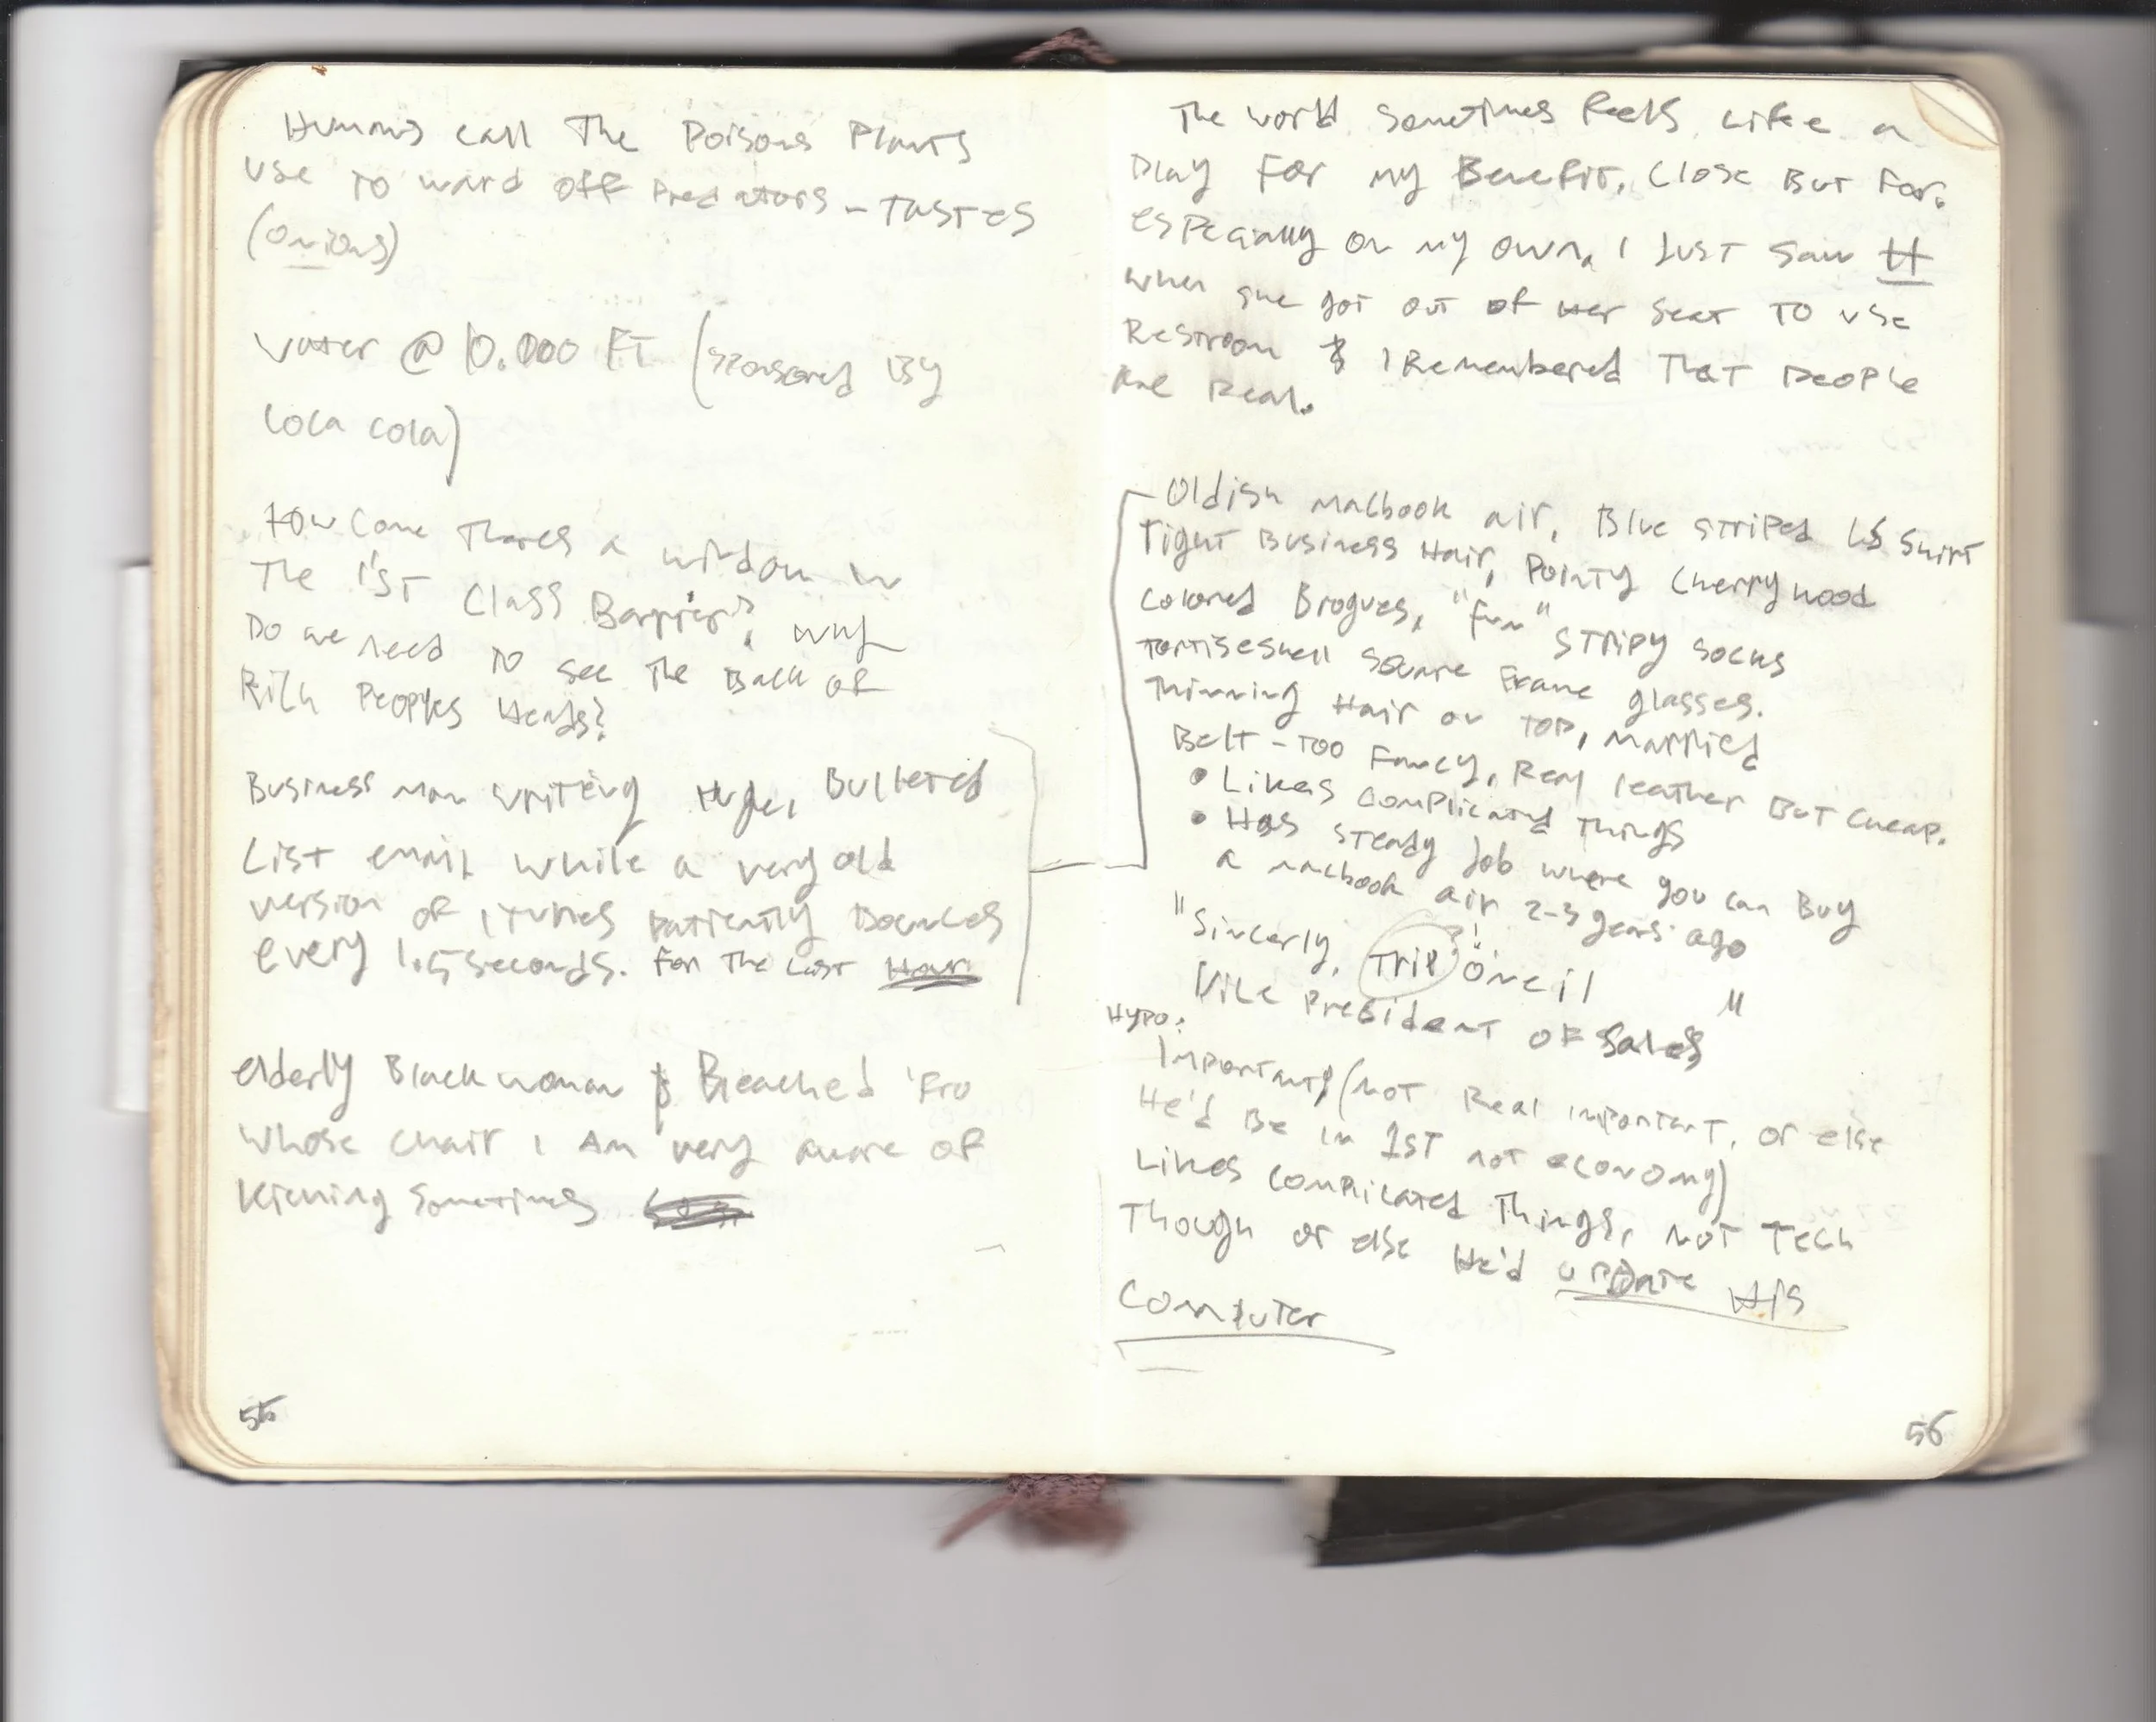 Humans call The Poisons Plants
use to ward off predators - TASTES
(onions)
water @ 10.000 FT (sponsored By
Coca cola)
How Come There's a window in
The 1'ST Class Barrier? why
Do we need to see The Back of
Rich Peoples Heads?
Business man writing Huge, Bulleted
List email while a very old
version of iTunes patiently Bounces
every 1.5 seconds. For The Last Hour
elderly Black woman Bleached 'Fro
whose chair I am very aware of
kicking sometimes
55
The world sometimes feels like a
play For my Benefit, Close But Far.
especially on my own. I Just saw H
when she got out of Her seat to use
Restroom & I Remembered That people
are Real.
Oldish macbook air, Blue striped LS Shirt
Tight Business Hair, Pointy Cherrywood
colored Brogues, "fun" stripy socks
tortiseshell square Frame glasses.
Thinning Hair on TOP, married
Belt - Too Fancy, Real leather But cheap.
• Likes complicated Things
• Has steady Job where you can Buy
a macbook air 2-3 years ago
"Sincerly, Trip ?! Oneil
Vice President of Sales"
Hypo:
Important, (not Real important, or else
He'd Be in 1ST not economy)
Likes complicated Things, not Tech
Though or else He'd update His
Computer
56